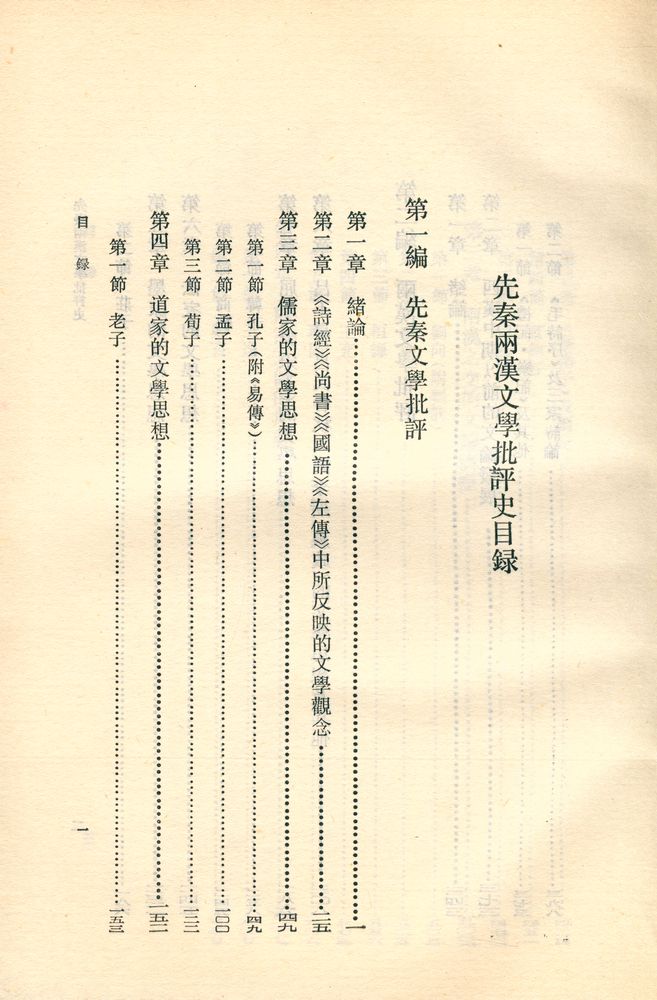 先秦兩漢文學批評史目録
第一編　先秦文學批評
第一章　緒論……一
第二章　《詩經》《尚書》《國語》《左傳》中所反映的文學觀念……二五
第三章　儒家的文學思想……四九
第一節　孔子（附《易傳》）……四九
第二節　孟子……一〇〇
第三節　荀子……一二二
第四章　道家的文學思想……一五二
第一節　老子……一五三
目　録
一